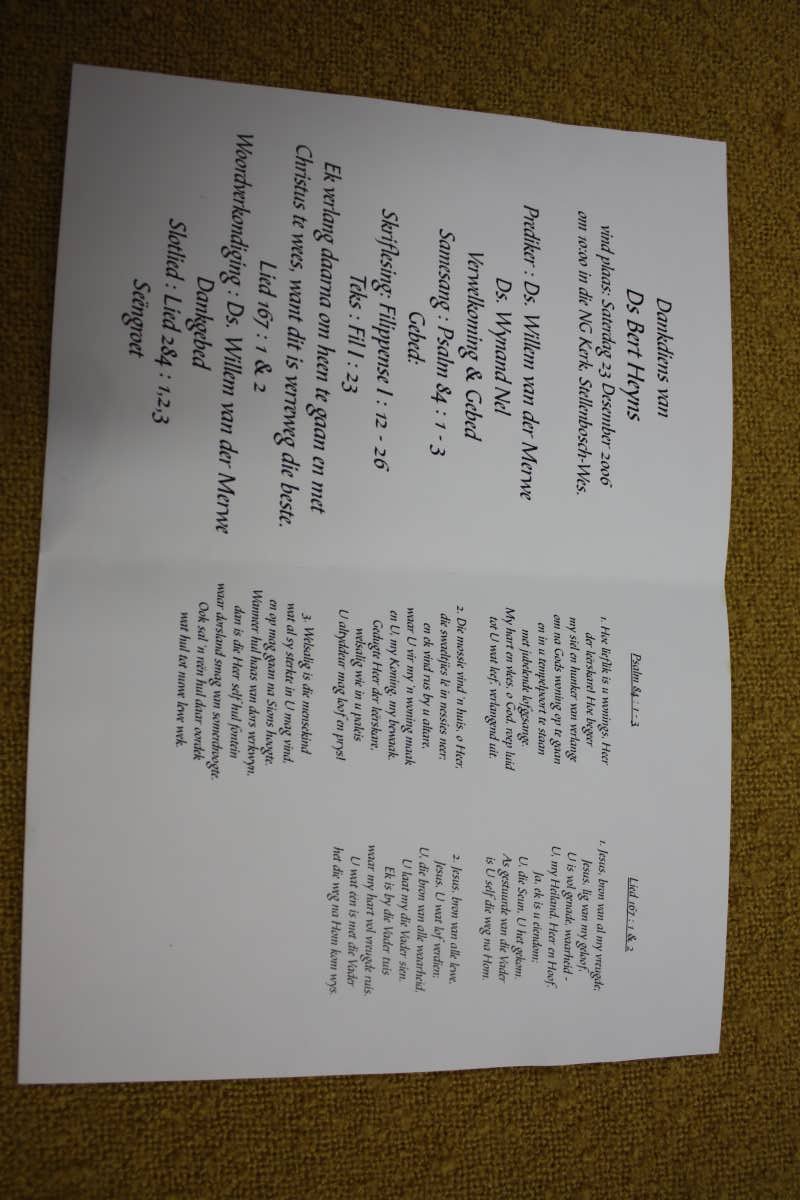 Dankdiens van
Ds Bert Heyns
vind plaas: Saterdag 23 Desember 2006
om 10:00 in die NG Kerk, Stellenbosch-Wes.
Prediker : Ds. Willem van der Merwe
Ds. Wynand Nel
Verwelkoming & Gebed
Samesang : Psalm 84 : 1 - 3
Gebed:
Skriflesing: Filippense 1 : 12 - 26
Teks : Fil 1 : 23
Ek verlang daarna om heen te gaan en met
Christus te wees, want dit is verreweg die beste.
Lied 167 : 1 & 2
Woordverkondiging : Ds. Willem van der Merwe
Dankgebed
Slotlied : Lied 284 : 1,2,3
Seëngroet
Psalm 84 : 1 - 3
1. Hoe lieflik is u wonings, Heer
der leërskare! Hoe begeer
my siel en hunker van verlange
om na Gods woning op te gaan
en in u tempelpoort te staan
met jubelende lofgesange.
My hart en vlees, o God, roep luid
tot U wat leef, verlangend uit.
2. Die mossie vind 'n huis, o Heer,
die swaeltjies lê in nessies neer;
en ek vind rus by u altare,
waar U vir my 'n woning maak
en U, my Koning, my bewaak.
Gedugte Heer der leërskare,
welsalig wie in u paleis
U altyddeur mag loof en prys!
3. Welsalig is die mensekind
wat al sy sterkte in U mag vind,
en op mag gaan na Sions hoogte.
Wanneer hul haas van dors verkwyn,
dan is die Heer self hul fontein
waar dorsland smag van somerdroogte.
Ook sal 'n reën hul daar oordek
wat hul tot nuwe lewe wek.
Lied 167 : 1 & 2
1. Jesus, bron van al my vreugde;
Jesus, lig van my geloof,
U is vol genade, waarheid -
U, my Heiland, Heer en Hoof.
Ja, ek is u eiendom;
U, die Seun, U het gekom.
As gestuurde van die Vader
is U self die weg na Hom.
2. Jesus, bron van alle lewe,
Jesus, U wat lof verdien;
U, die bron van alle waarheid,
U laat my die Vader sien.
Ek is by die Vader tuis
waar my hart vol vreugde ruis.
U wat een is met die Vader
het die weg na Hom kom wys.